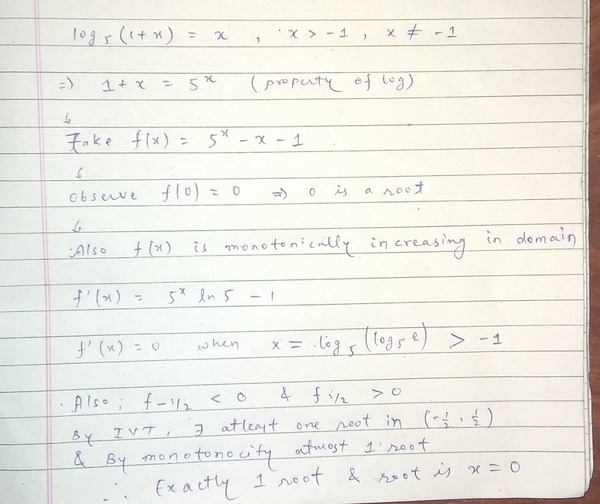 log₅(1+x) = x , x > -1 , x ≠ -1
=) 1 + x = 5ˣ (property of log)
Take f(x) = 5ˣ - x - 1
Observe f(0) = 0 => 0 is a root
Also f(x) is monotonically increasing in domain
f'(x) = 5ˣ ln 5 - 1
f'(x) = 0 when x = log₅(log₅ e) > -1
Also; f -1/2 < 0 & f 1/2 > 0
By IVT, ∃ atleast one root in (-1/2, 1/2)
& By monotonocity atmost 1 root
∴ Exactly 1 root & root is x = 0